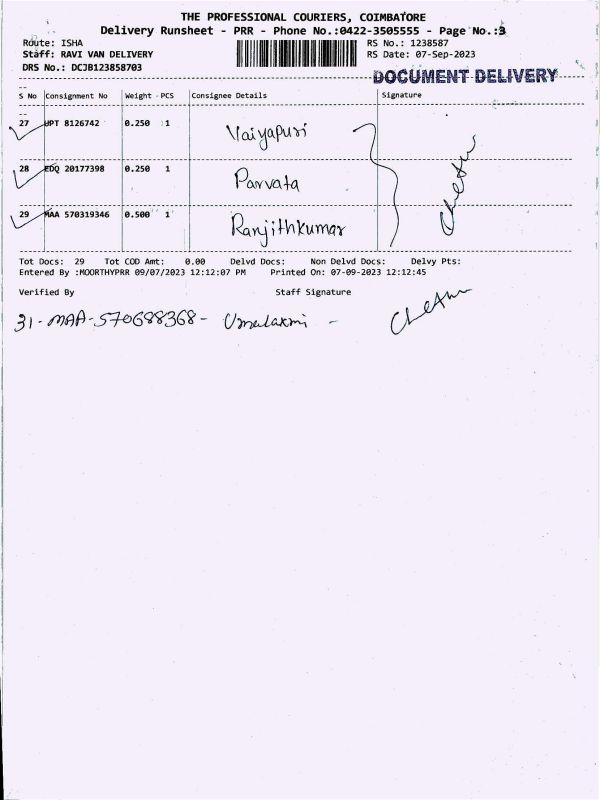 THE PROFESSIONAL COURIERS, COIMBATORE
Delivery Runsheet - PRR - Phone No.:0422-3505555 - Page No.:3
Route: ISHA RS No.: 1238587
Staff: RAVI VAN DELIVERY RS Date: 07-Sep-2023
DRS No.: DCJB123858703
DOCUMENT DELIVERY
S No Consignment No Weight - PCS Consignee Details Signature
27 UPT 8126742 0.250 1 Vaiyapuri
28 EDQ 20177398 0.250 1 Parvata
29 MAA 570319346 0.500 1 Ranjithkumar
Chetan
Tot Docs: 29 Tot COD Amt: 0.00 Delvd Docs: Non Delvd Docs: Delvy Pts:
Entered By :MOORTHYPRR 09/07/2023 12:12:07 PM Printed On: 07-09-2023 12:12:45
Verified By Staff Signature
31 - MAA - 570688368 - Umalaxmi - Chetan